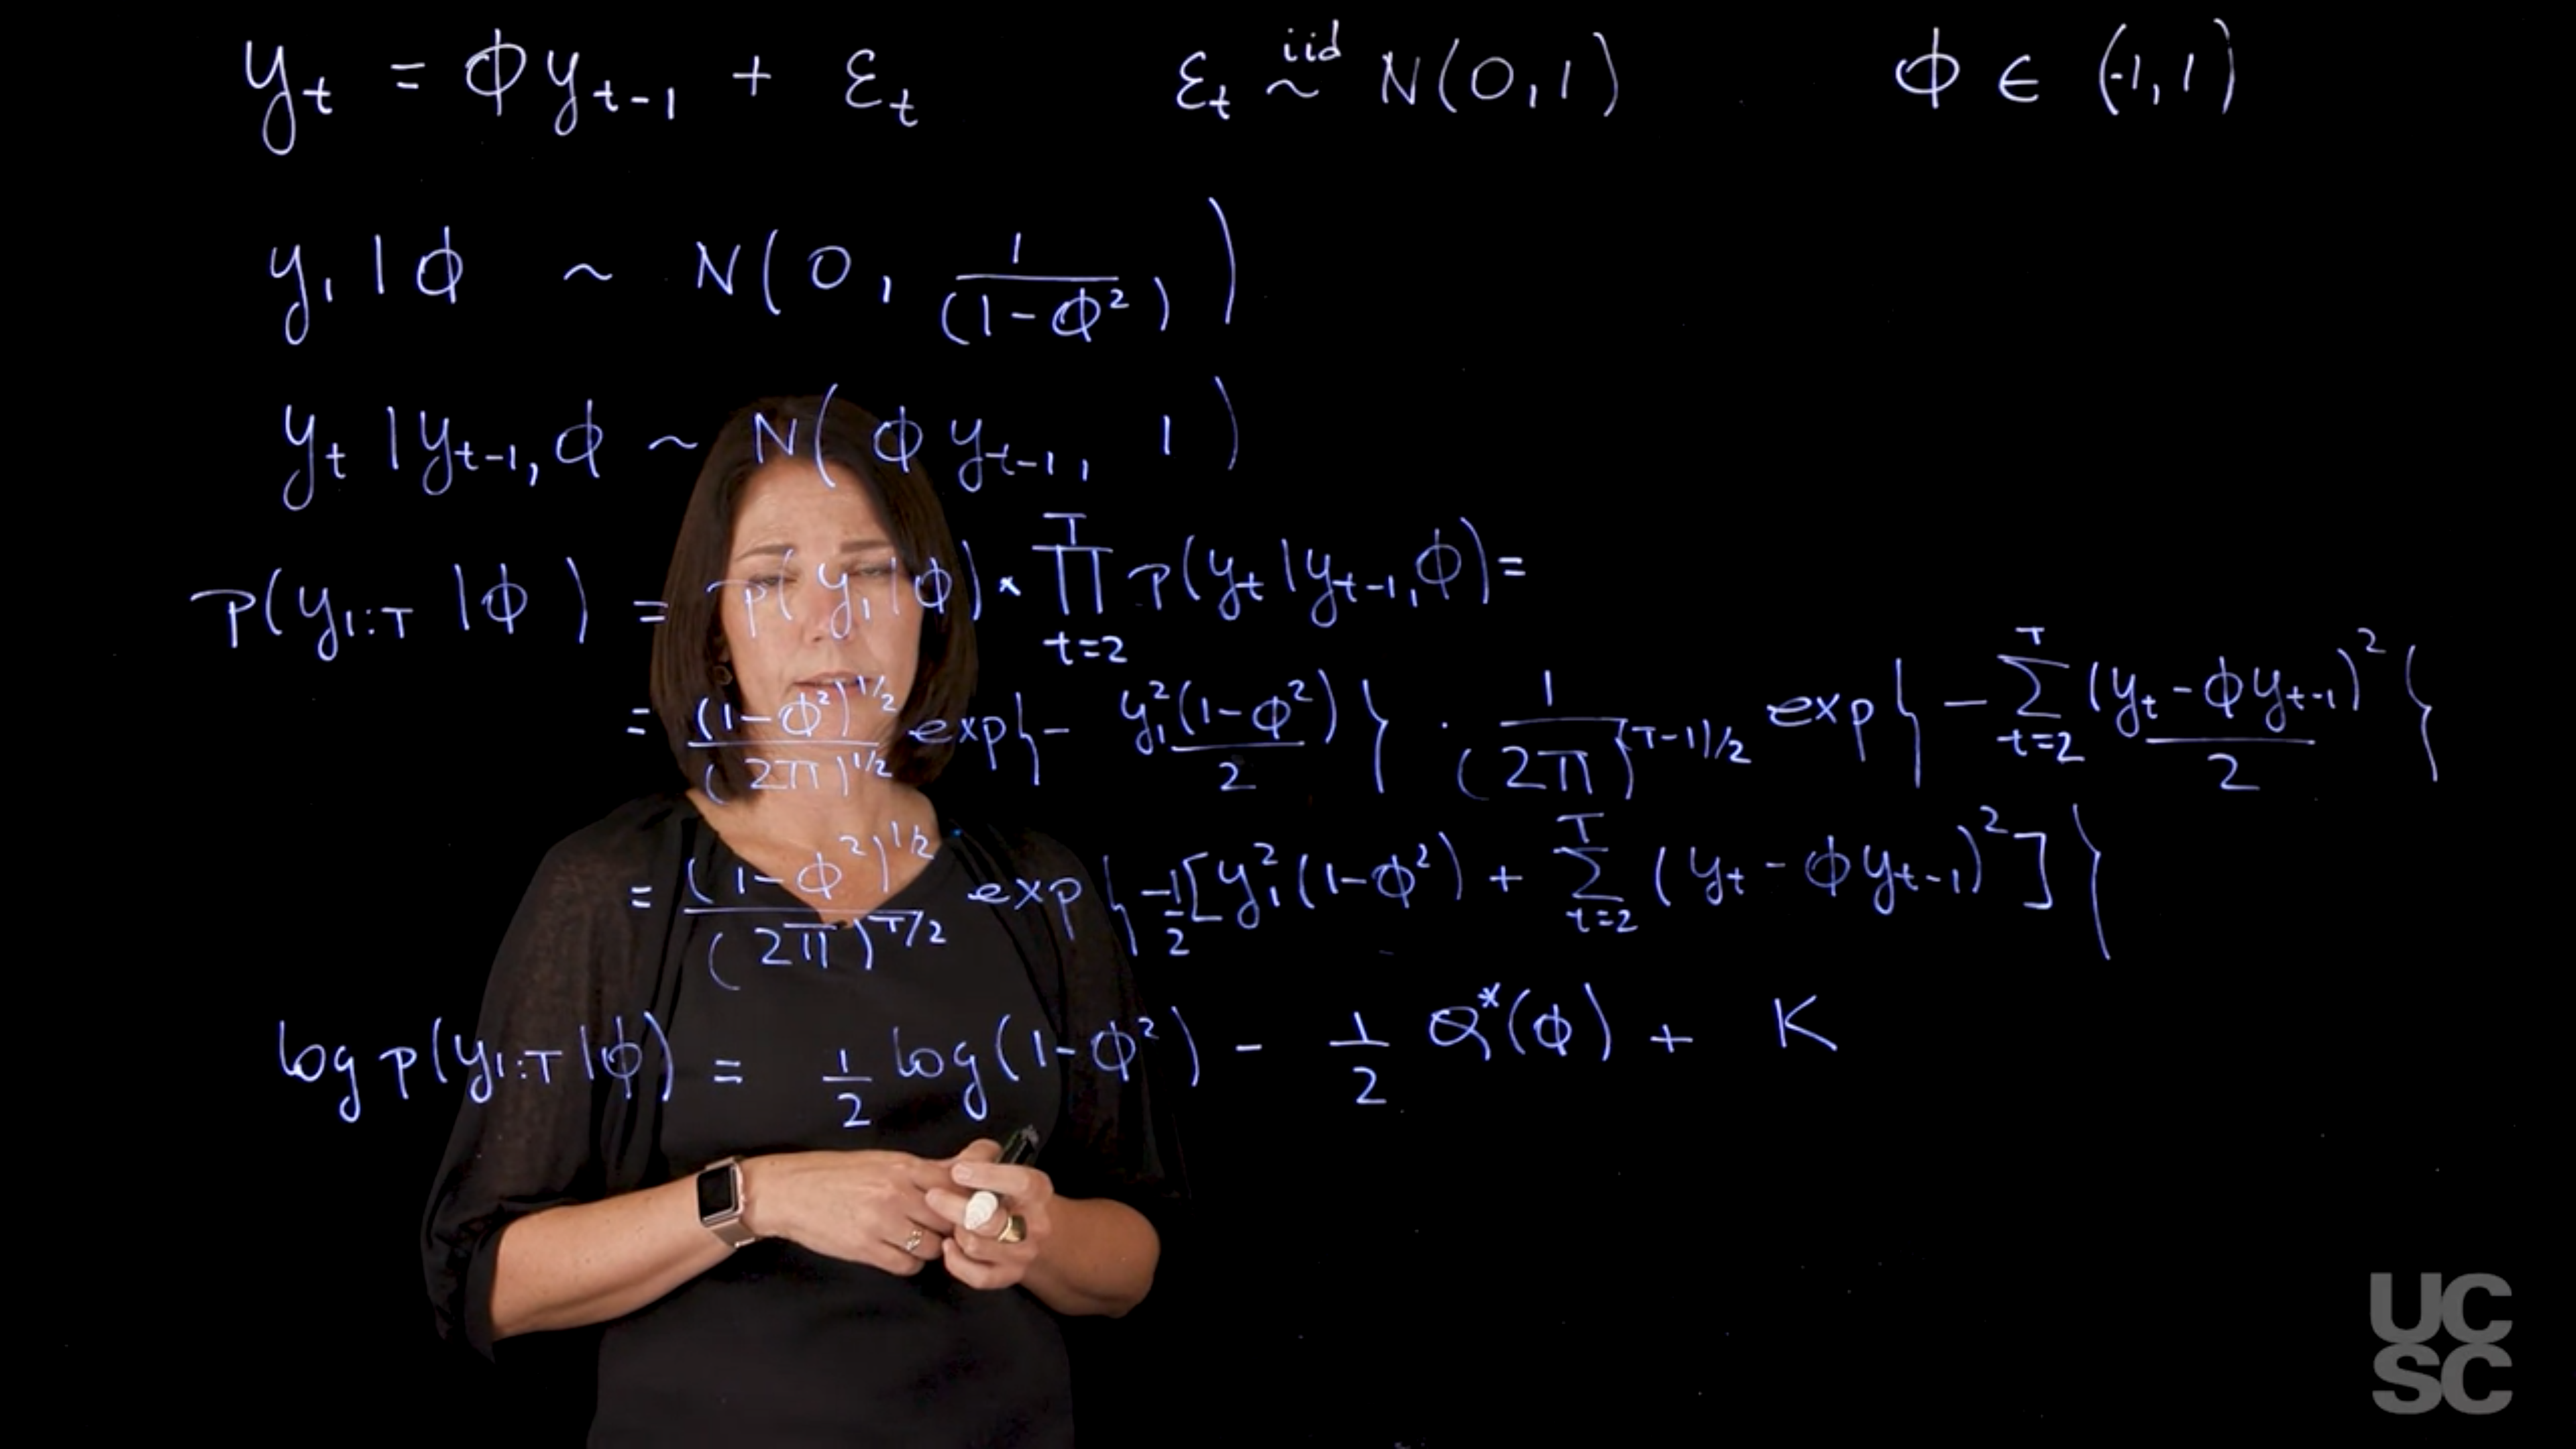 y_t = ϕ y_{t-1} + ε_t    ε_t ~^{iid} N(0,1)    ϕ ∈ (-1,1)
y_1 | ϕ ~ N(0, 1/(1-ϕ²))
y_t | y_{t-1}, ϕ ~ N(ϕ y_{t-1}, 1)
p(y_{1:T} | ϕ) = p(y_1 | ϕ) × ∏_{t=2}^{T} p(y_t | y_{t-1}, ϕ) =
= (1-ϕ²)^{1/2} / (2π)^{1/2} exp{ - y_1²(1-ϕ²) / 2 } · 1 / (2π)^{(T-1)/2} exp{ - ∑_{t=2}^{T} (y_t - ϕ y_{t-1})² / 2 }
= (1-ϕ²)^{1/2} / (2π)^{T/2} exp{ -1/2 [ y_1²(1-ϕ²) + ∑_{t=2}^{T} (y_t - ϕ y_{t-1})² ] }
log p(y_{1:T} | ϕ) = 1/2 log(1-ϕ²) - 1/2 Q*(ϕ) + K
UC
SC